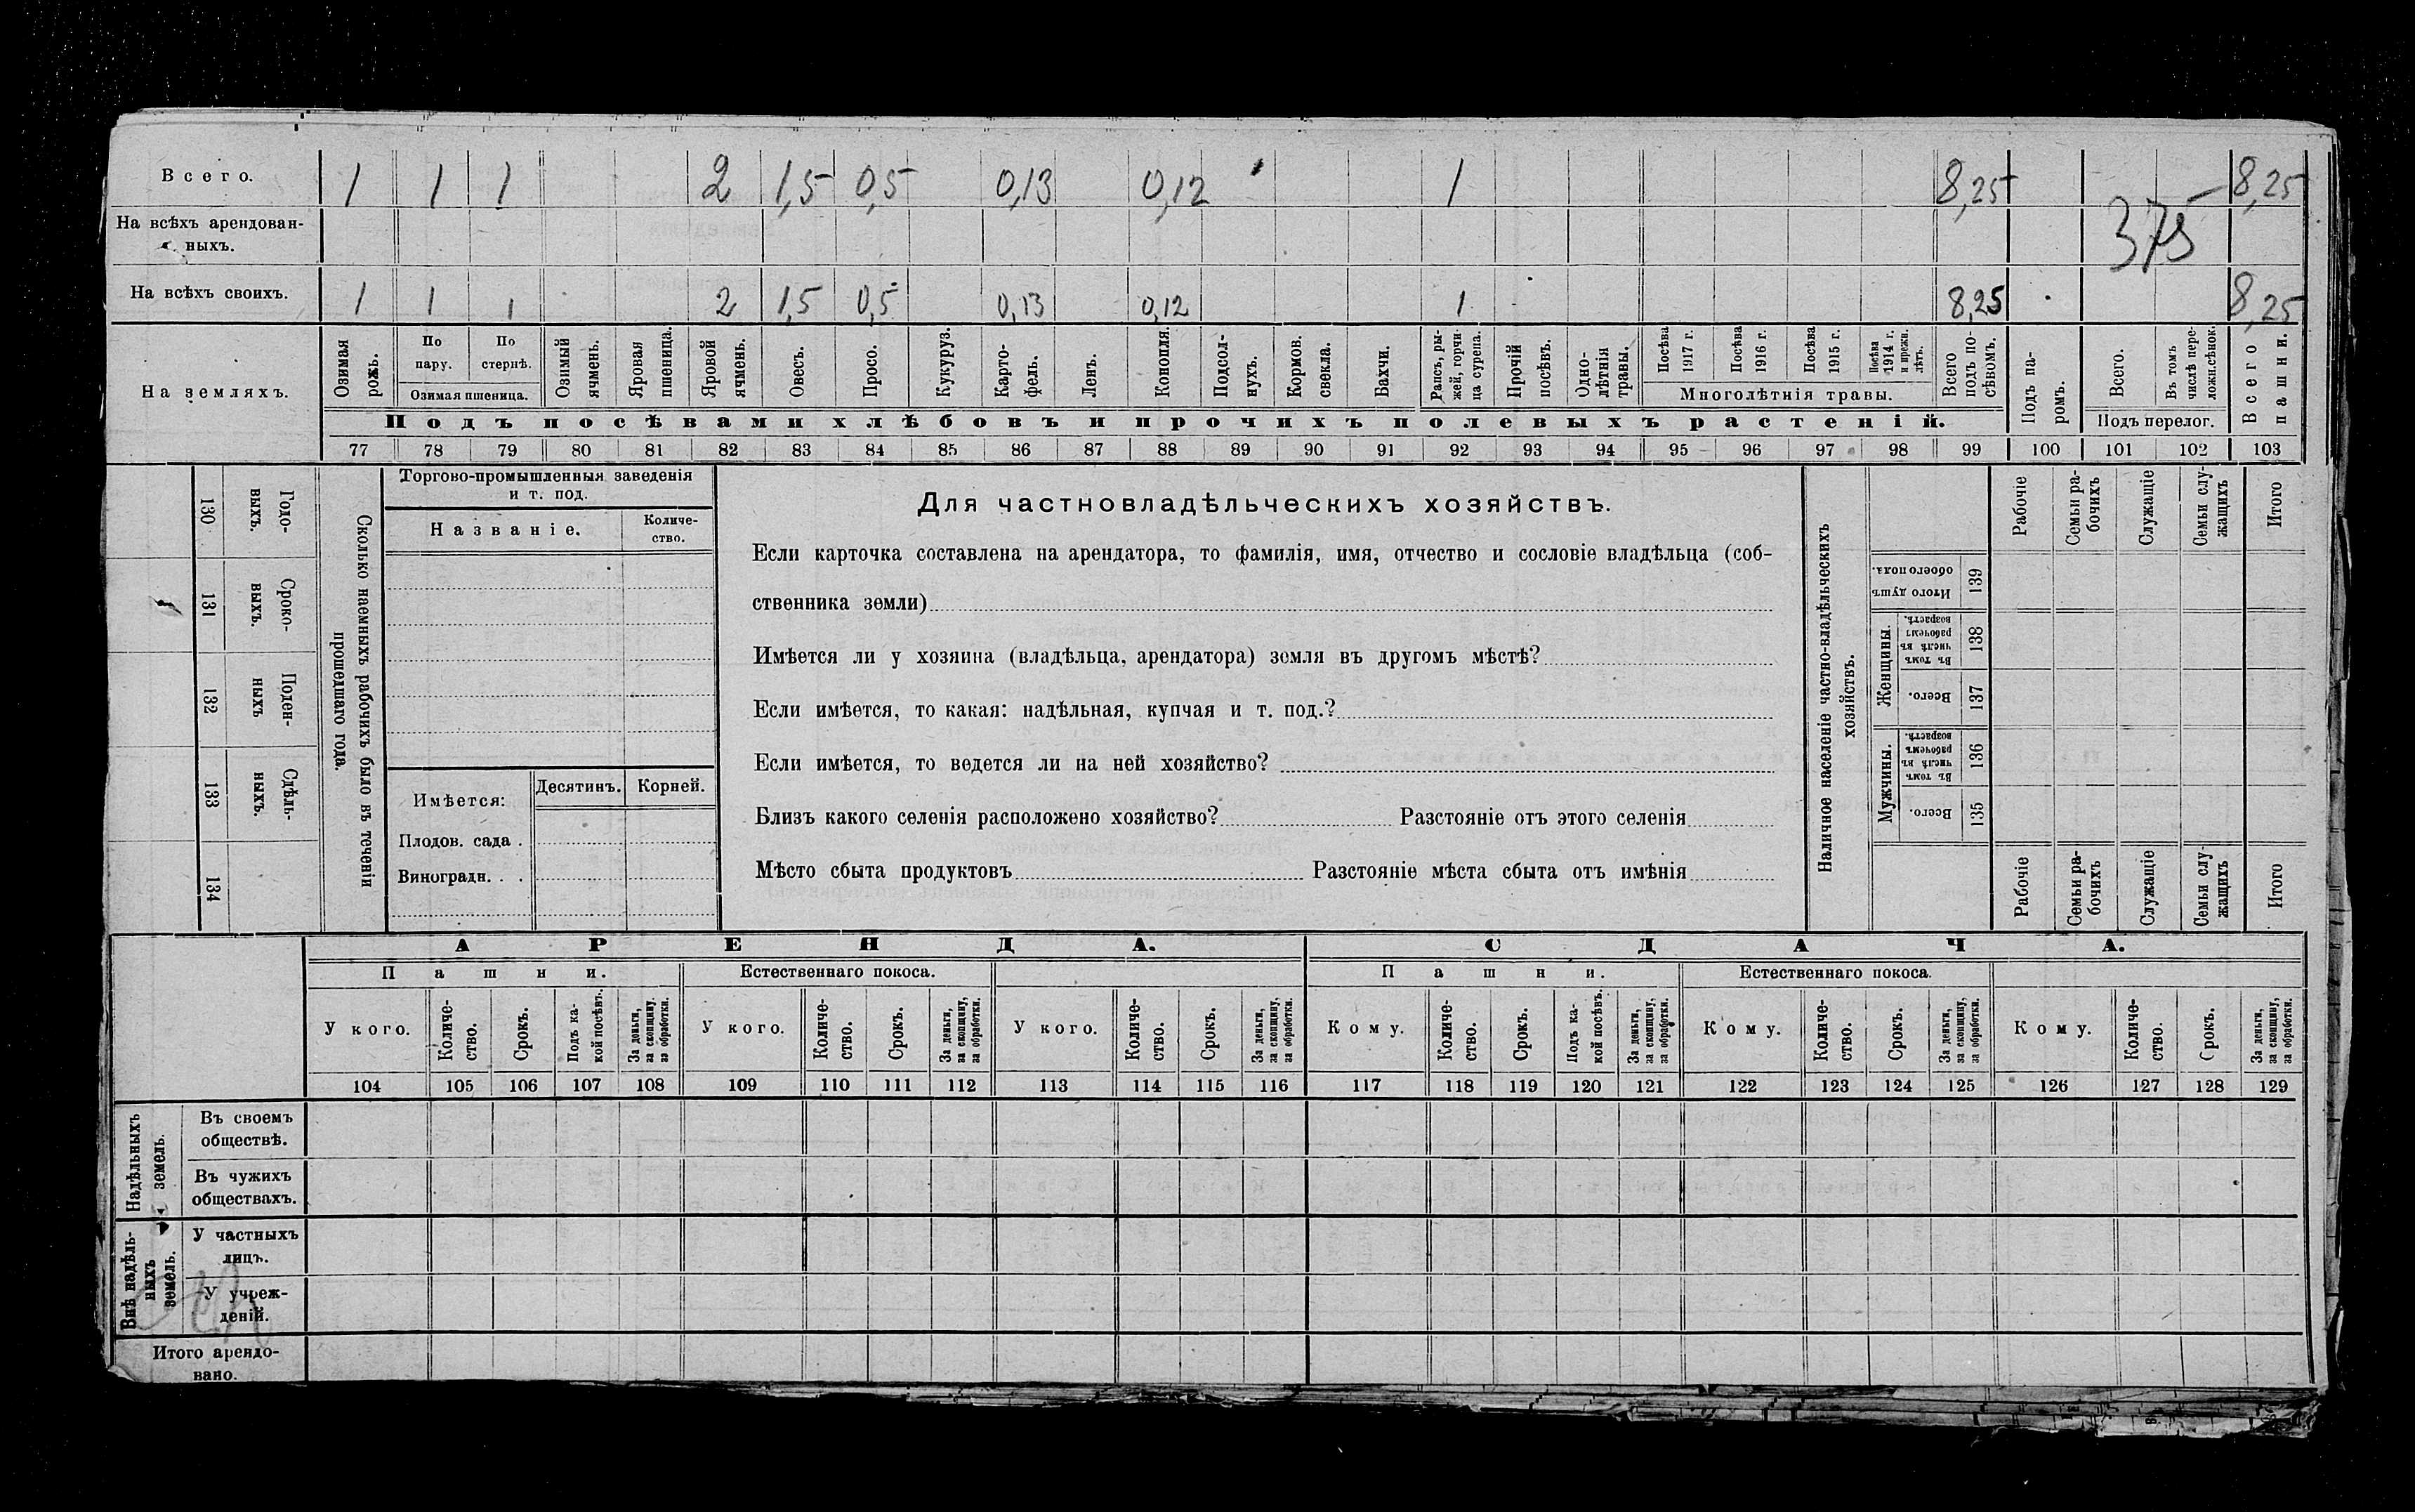 Всего. 1 1 1 2 1,5 0,5 0,13 0,12 1 8,25 8,25
На всѣхъ арендован-
ныхъ. 375
На всѣхъ своихъ. 1 1 1 2 1,5 0,5 0,13 0,12 1 8,25 8,25
На земляхъ.
Озимая рожь.
По пару.
По стернѣ.
Озимая пшеница.
Озимый ячмень.
Яровая пшеница.
Яровой ячмень.
Овесъ.
Просо.
Кукуруз.
Карто-
фель.
Ленъ.
Конопля.
Подсол-
нухъ.
Кормов. свекла.
Бахчи.
Рапсъ, ры-
жей, горчи-
ца сурепа.
Прочій посѣвъ.
Одно-
лѣтнія травы.
Посѣва 1917 г.
Посѣва 1916 г.
Посѣва 1915 г.
Посѣва 1914 г. и прежн. лѣтъ.
Многолѣтнія травы.
Всего подъ по-
сѣвомъ.
Подъ па-
ромъ.
Всего.
Въ томъ числѣ пере-
ложн.сѣнок.
Подъ перелог.
Всего пашни.
Подъ посѣвами хлѣбовъ и прочихъ полевыхъ растеній.
77 78 79 80 81 82 83 84 85 86 87 88 89 90 91 92 93 94 95 96 97 98 99 100 101 102 103
130 Годо-
выхъ.
131 Сроко-
выхъ.
132 Поден-
ныхъ
133 Сдѣль-
ныхъ.
134
Сколько наемныхъ рабочихъ было въ теченіи
прошедшаго года.
Торгово-промышленныя заведенія
и т. под.
Названіе.
Количе-
ство.
Имѣется:
Десятинъ. Корней.
Плодов. сада .
Виноградн. . .
Для частновладѣльческихъ хозяйствъ.
Если карточка составлена на арендатора, то фамилія, имя, отчество и сословіе владѣльца (соб-
ственника земли)
Имѣется ли у хозяина (владѣльца, арендатора) земля въ другомъ мѣстѣ?
Если имѣется, то какая: надѣльная, купчая и т. под.?
Если имѣется, то ведется ли на ней хозяйство?
Близъ какого селенія расположено хозяйство? Разстояніе отъ этого селенія
Мѣсто сбыта продуктовъ Разстояніе мѣста сбыта отъ имѣнія
Наличное населеніе частно-владѣльческихъ
хозяйствъ.
Рабочіе
Семьи ра-
бочихъ
Служащіе
Семьи слу-
жащихъ
Итого
Итого душъ обоего пола. 139
Женщины.
Въ томъ числѣ въ рабочемъ возрастѣ. 138
Всего. 137
Мужчины.
Въ томъ числѣ въ рабочемъ возрастѣ. 136
Всего. 135
Рабочіе
Семьи ра-
бочихъ
Служащіе
Семьи слу-
жащихъ
Итого
АРЕНДА. СДАЧА.
Пашни. Естественнаго покоса. Пашни. Естественнаго покоса.
У кого.
Количе-
ство.
Срокъ.
Подъ ка-
кой посѣвъ.
За деньги, за скопщину, за обработки.
У кого.
Количе-
ство.
Срокъ.
За деньги, за скопщину, за обработки.
У кого.
Количе-
ство.
Срокъ.
За деньги, за скопщину, за обработки.
Кому.
Количе-
ство.
Срокъ.
Подъ ка-
кой посѣвъ.
За деньги, за скопщину, за обработки.
Кому.
Количе-
ство.
Срокъ.
За деньги, за скопщину, за обработки.
Кому.
Количе-
ство.
Срокъ.
За деньги, за скопщину, за обработки.
104 105 106 107 108 109 110 111 112 113 114 115 116 117 118 119 120 121 122 123 124 125 126 127 128 129
Надѣльныхъ земель.
Въ своемъ
обществѣ.
Въ чужихъ
обществахъ.
Внѣ надѣль-
ныхъ земель.
У частныхъ
лицъ.
У учреж-
деній.
Итого арендо-
вано.